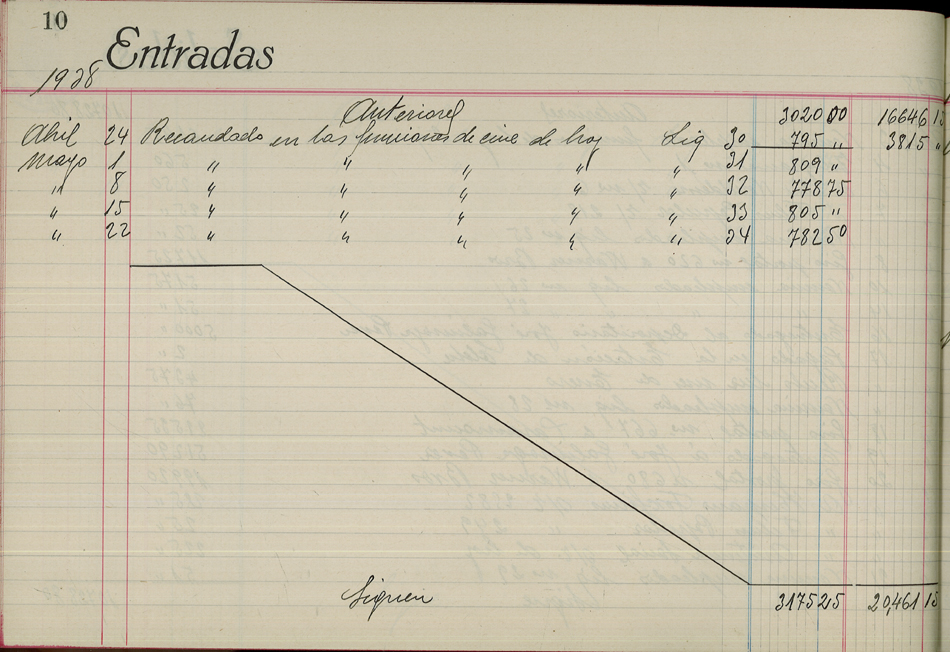 10
Entradas
1928
Anteriores 3020 00 16646 15
Abril 24 Recaudado en las funciones de cine de hoy Liq 30 795 " 3815 "
Mayo 1 " " " " " 31 809 "
" 8 " " " " " 32 778 75
" 15 " " " " " 33 805 "
" 22 " " " " " 34 782 50
Siguen 3175 25 20,461 15